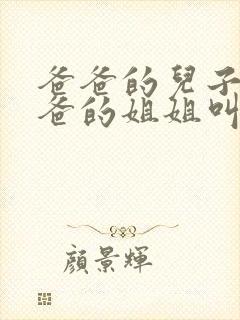 爸爸的兒子
爸的姐姐叫
顏景輝